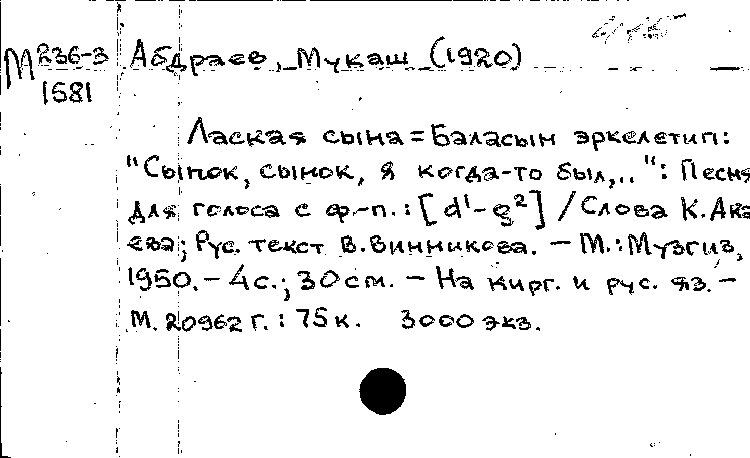 М 236-3 Абдраев, Мукаш (1920)
1581
Ласкaя сына = Баласын эркелетип:
"Сынок, сынок, я когда-то был,..": Песня
для голоса с ф.-п.: [d¹-g²] / Слова К. Ака
ева; Рус. текст В. Винникова. – М.: Музгиз,
1950. – 4 с.; 30 см. – На кирг. и рус. яз. –
М. 20962 г. : 75 к. 3000 экз.